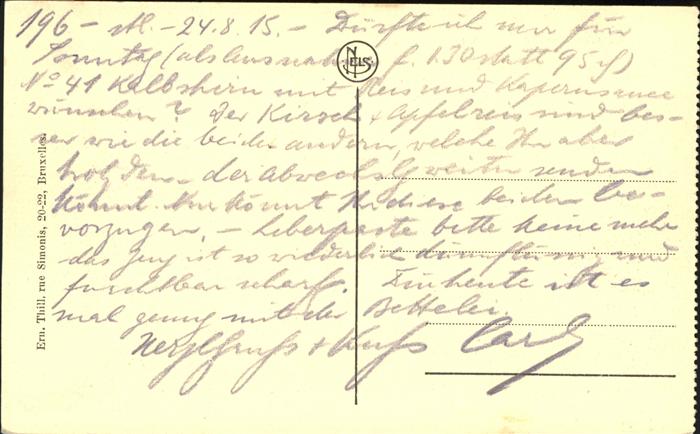 196 – Al. – 24.8.15. – Dürfte ich nur für
Sonntag (als Ausnahme f. 1.30 statt 95 ₰)
No 41 Kalbshirn mit Reis und Kapernsauce
wünschen? Der Kirsch + Apfelreis sind bes-
ser wie die beiden andern, welche Ihr aber
trotzdem der Abwechslg weiter senden
könnt. Nur könnt Ihr diese beiden be-
vorzugen. – Leberpaste bitte keine mehr
das Zeug ist so widerlich dünnflüssig und
furchtbar scharf. Für heute ist es
mal genug mit der Bettelei.
Herzl. Gruß + Kuß Carl
NELS
Ern. Thill, rue Simonis, 20-22, Bruxelles.